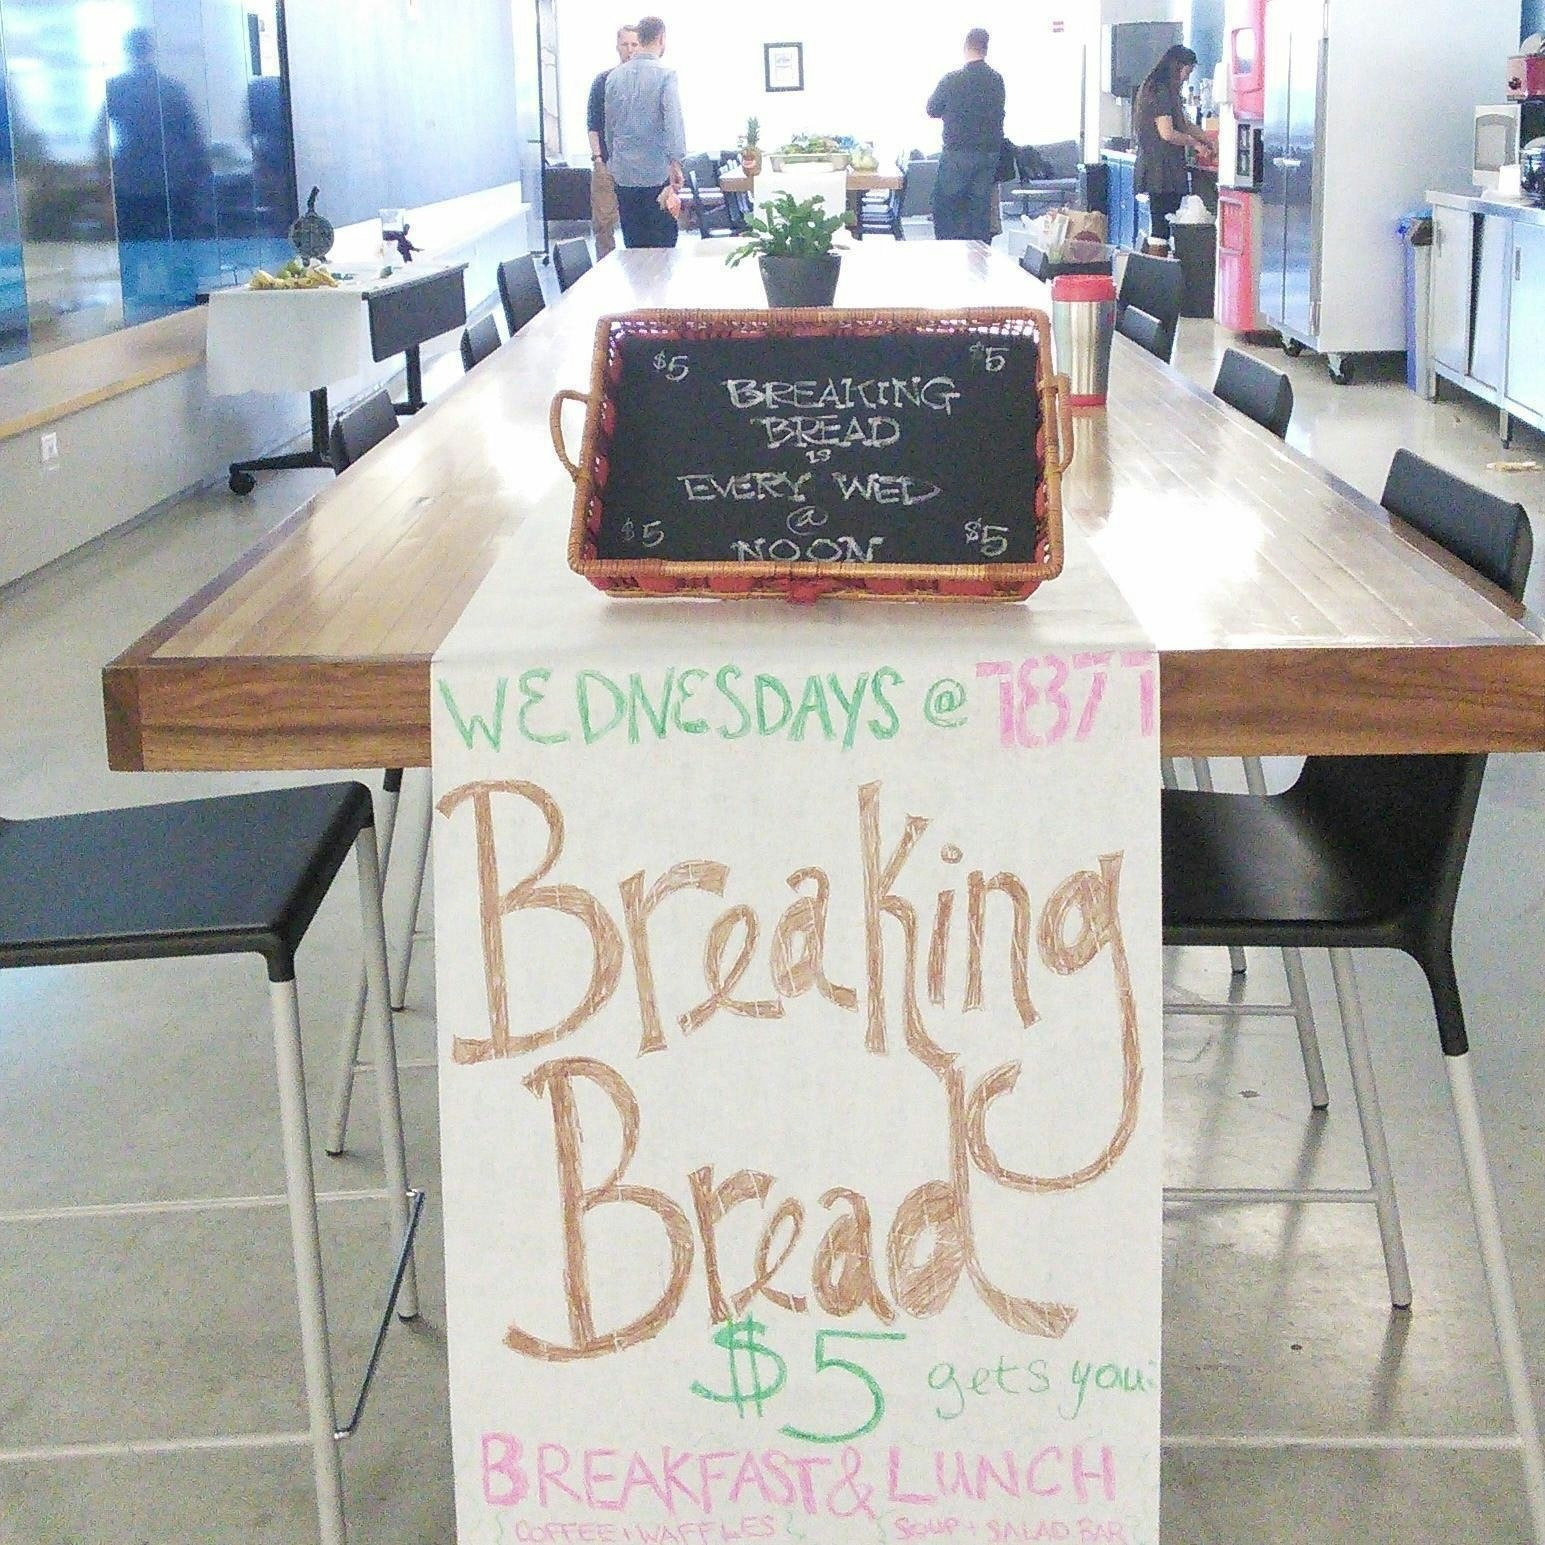 $5 $5
BREAKING
BREAD
is
EVERY WED
@
$5 $5
NOON
WEDNESDAYS @ 1871
Breaking
Bread
$5 gets you:
BREAKFAST & LUNCH
COFFEE + WAFFLES SOUP + SALAD BAR